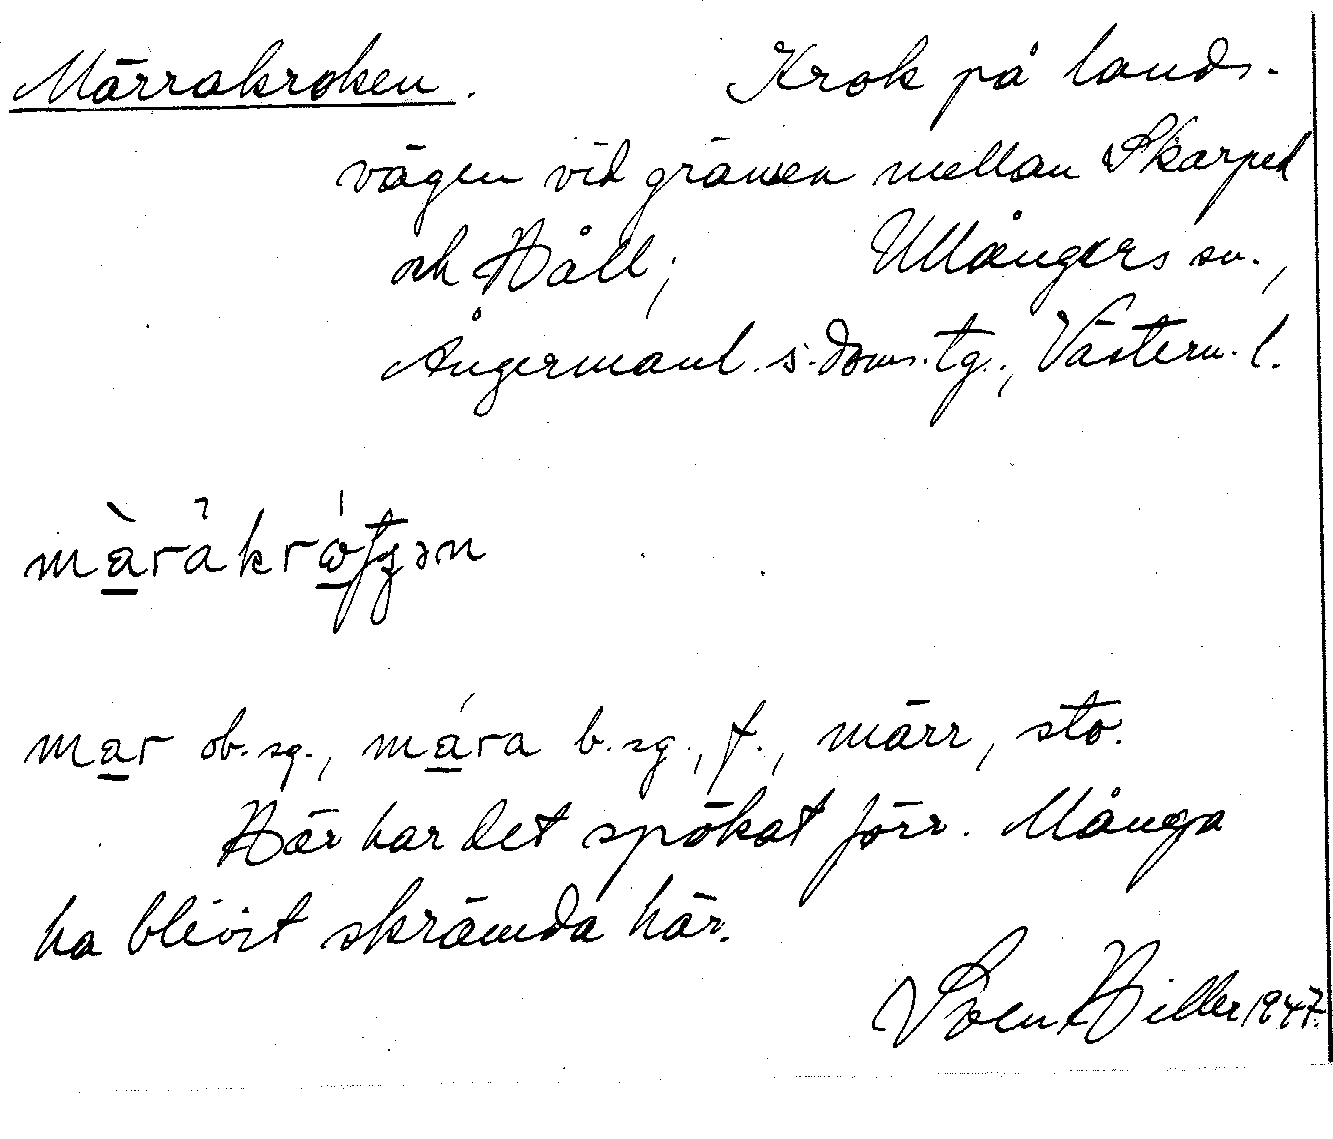 Märrakroken. Krok på lands-
vägen vid gränsen mellan Skarped
och Håll; Ullångers sn.,
Ångermanl. s. doms.tg., Västern. l.
mar ob. sg., mára b. sg., f., märr, sto.
Här har det spökat förr. Många
ha blivit skrämda här.
Sven Hiller 1947.